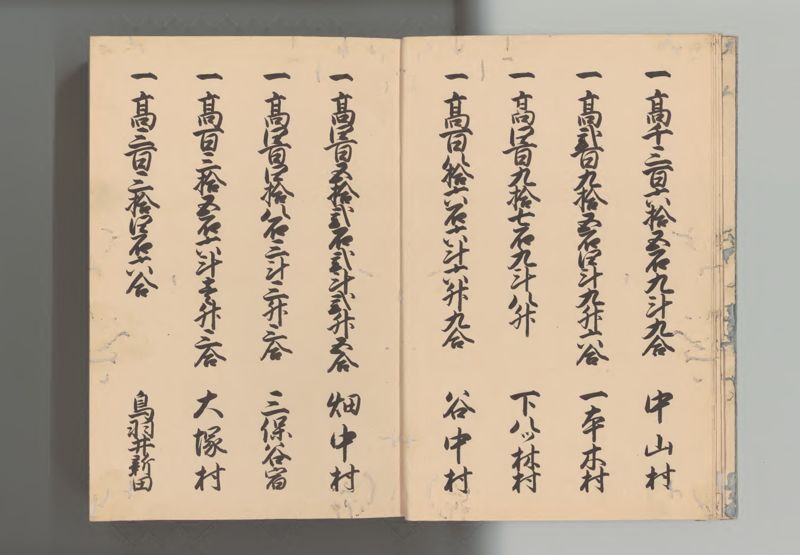 一高千三百六拾五石九斗九合 中山村
一高弐百九拾五石四斗九升六合 一本木村
一高四百九拾七石九斗八升 下八ツ林村
一高百八拾六石六斗六升九合 谷中村
一高四百五拾弐石弐斗弐升五合 畑中村
一高四百四拾八石三斗三升三合 三保谷宿
一高百三拾五石六斗壱升三合 大塚村
一高三百三拾四石六合 鳥羽井新田